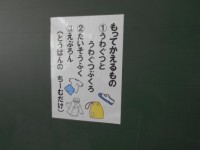 もってかえるもの
①うわぐつと
うわぐつぶくろ
②たいそうふく
③えぷろん
(とうばんの ちーむだけ)